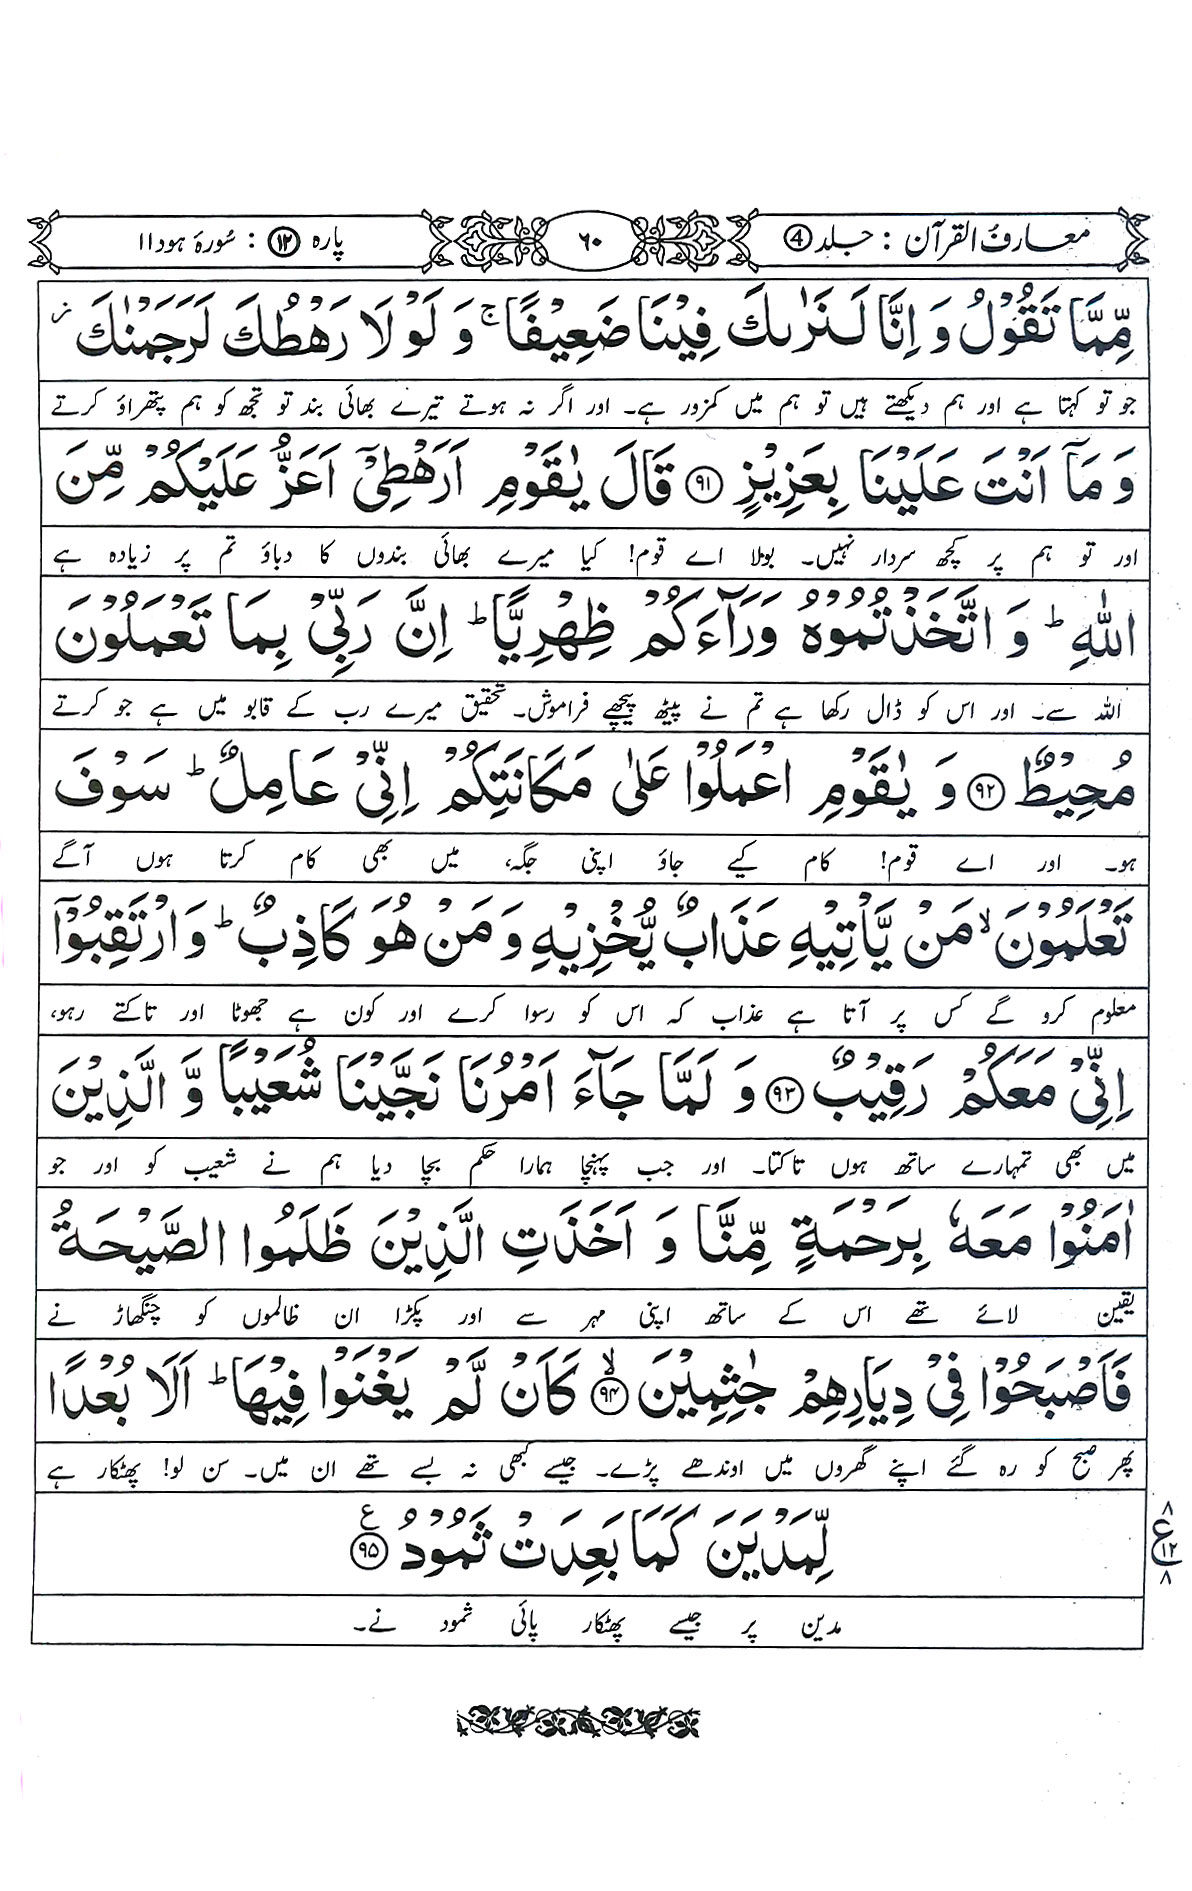 معارفُ القرآن : جلد ④ ۶۰ پارہ ⑫ : سُورۂ ہود ۱۱
مِّمَّا تَقُوْلُ وَ اِنَّا لَنَرٰىكَ فِيْنَا ضَعِيْفًا ۚ وَ لَوْ لَا رَهْطُكَ لَرَجَمْنٰكَ ؗ
جو تو کہتا ہے اور ہم دیکھتے ہیں تو ہم میں کمزور ہے۔ اور اگر نہ ہوتے تیرے بھائی بند تو تجھ کو ہم پتھراؤ کرتے
وَ مَاۤ اَنْتَ عَلَيْنَا بِعَزِيْزٍ ۹۱ قَالَ يٰقَوْمِ اَرَهْطِيْۤ اَعَزُّ عَلَيْكُمْ مِّنَ
اور تو ہم پر کچھ سردار نہیں۔ بولا اے قوم! کیا میرے بھائی بندوں کا دباؤ تم پر زیادہ ہے
اللّٰهِ ؕ وَ اتَّخَذْتُمُوْهُ وَرَآءَكُمْ ظِهْرِيًّا ؕ اِنَّ رَبِّيْ بِمَا تَعْمَلُوْنَ
اللہ سے۔ اور اس کو ڈال رکھا ہے تم نے پیٹھ پیچھے فراموش۔ تحقیق میرے رب کے قابو میں ہے جو کرتے
مُحِيْطٌ ۹۲ وَ يٰقَوْمِ اعْمَلُوْا عَلٰى مَكَانَتِكُمْ اِنِّيْ عَامِلٌ ؕ سَوْفَ
ہو۔ اور اے قوم! کام کیے جاؤ اپنی جگہ، میں بھی کام کرتا ہوں آگے
تَعْلَمُوْنَ ۙ مَنْ يَّاْتِيْهِ عَذَابٌ يُّخْزِيْهِ وَ مَنْ هُوَ كَاذِبٌ ؕ وَ ارْتَقِبُوْۤا
معلوم کرو گے کس پر آتا ہے عذاب کہ اس کو رسوا کرے اور کون ہے جھوٹا اور تاکتے رہو،
اِنِّيْ مَعَكُمْ رَقِيْبٌ ۹۳ وَ لَمَّا جَآءَ اَمْرُنَا نَجَّيْنَا شُعَيْبًا وَّ الَّذِيْنَ
میں بھی تمہارے ساتھ ہوں تاکتا۔ اور جب پہنچا ہمارا حکم بچا دیا ہم نے شعیب کو اور جو
اٰمَنُوْا مَعَهٗ بِرَحْمَةٍ مِّنَّا وَ اَخَذَتِ الَّذِيْنَ ظَلَمُوا الصَّيْحَةُ
یقین لائے تھے اس کے ساتھ اپنی مہر سے اور پکڑا ان ظالموں کو چنگھاڑ نے
فَاَصْبَحُوْا فِيْ دِيَارِهِمْ جٰثِمِيْنَ ۙ ۹۴ كَاَنْ لَّمْ يَغْنَوْا فِيْهَا ؕ اَلَا بُعْدًا
پھر صبح کو رہ گئے اپنے گھروں میں اوندھے پڑے۔ جیسے کبھی نہ بسے تھے ان میں۔ سن لو! پھٹکار ہے
لِّمَدْيَنَ كَمَا بَعِدَتْ ثَمُوْدُ ۹۵ ع
۸ ع ۱۲ ۸
مدین پر جیسے پھٹکار پائی ثمود نے۔